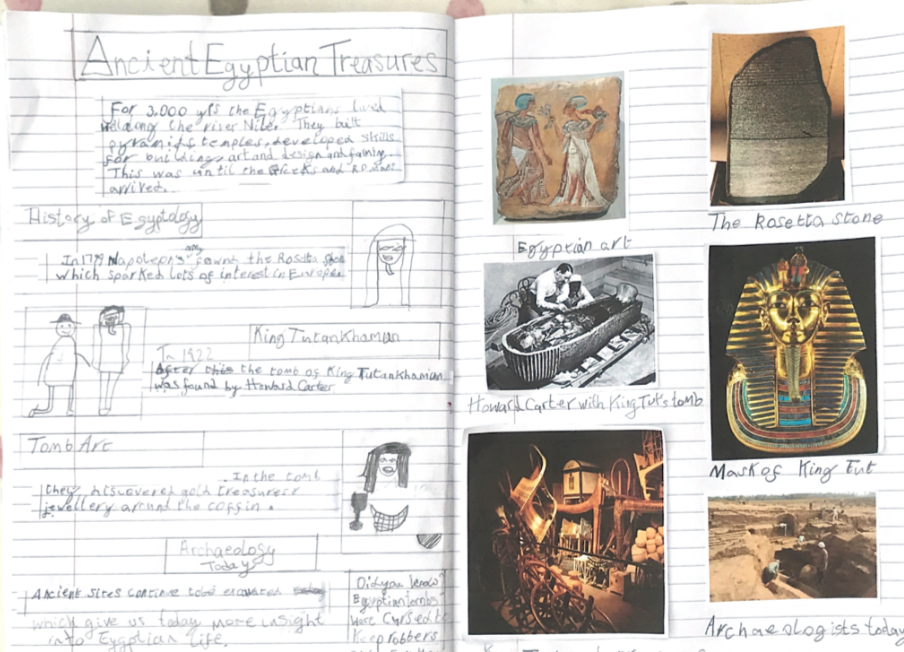 Ancient Egyptian Treasures
For 3,000 yrs the Egyptians lived
along the river Nile. They built
pyramids temples, developed skills
for buildings art and design and farming
This was until the Greeks and Romans
arrived.
History of Egyptology
In 1799 Napoleon's army found the Rosetta
which sparked lots of interest in European
King Tutankhamun
In 1922
After this the tomb of King Tutankhamun
was found by Howard Carter
Tomb Art
In the tomb
they discovered gold treasures
jewellery around the coffin.
Archaeology
Today
Ancient sites continue to be excavated
which give us today more insight
into Egyptian life.
Did you know?
Egyptian tombs
were cursed to
Keep robbers
Egyptian art
The Rosetta Stone
Howard Carter with King Tut's tomb
Mask of King Tut
Archaeologists today